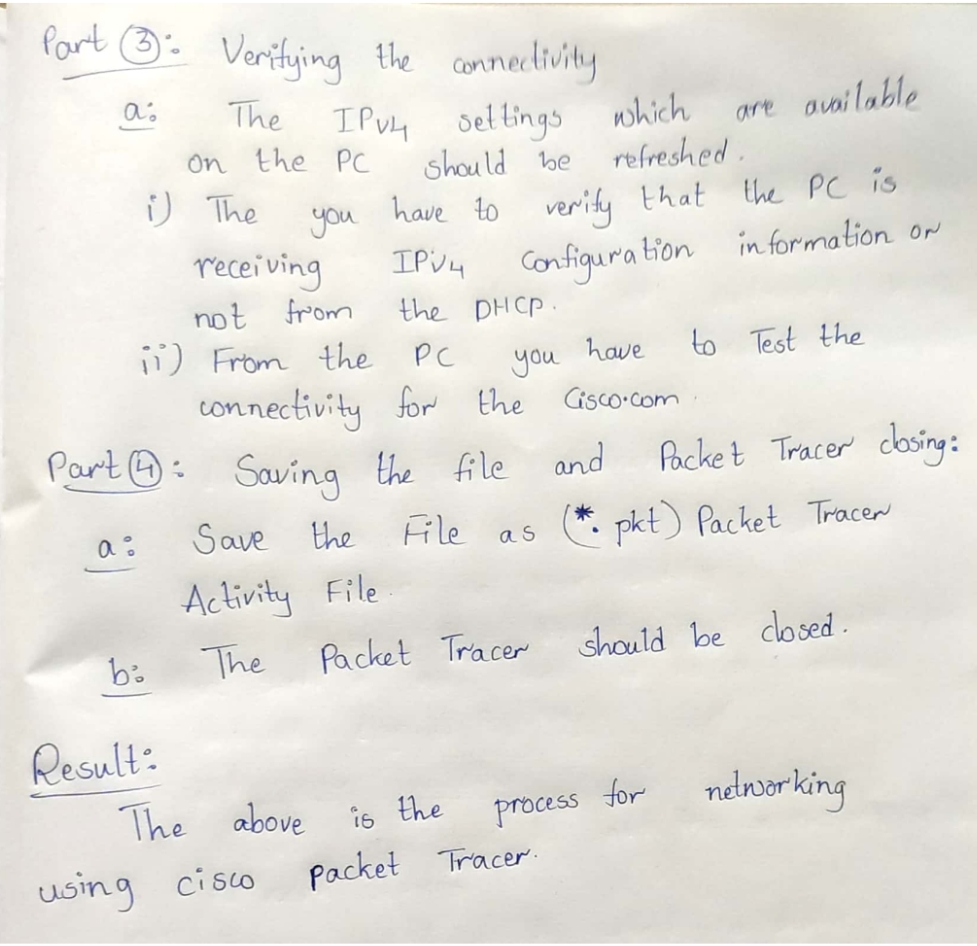 Part ③: Verifying the connectivity
a: The IPv4 settings which are available
on the PC should be refreshed.
i) The you have to verify that the PC is
receiving IPv4 Configuration information or
not from the DHCP.
ii) From the PC you have to Test the
connectivity for the Cisco.com
Part ④: Saving the file and Packet Tracer closing:
a: Save the File as (*. pkt) Packet Tracer
Activity File.
b: The Packet Tracer should be closed.
Result:
The above is the process for networking
using cisco packet Tracer.